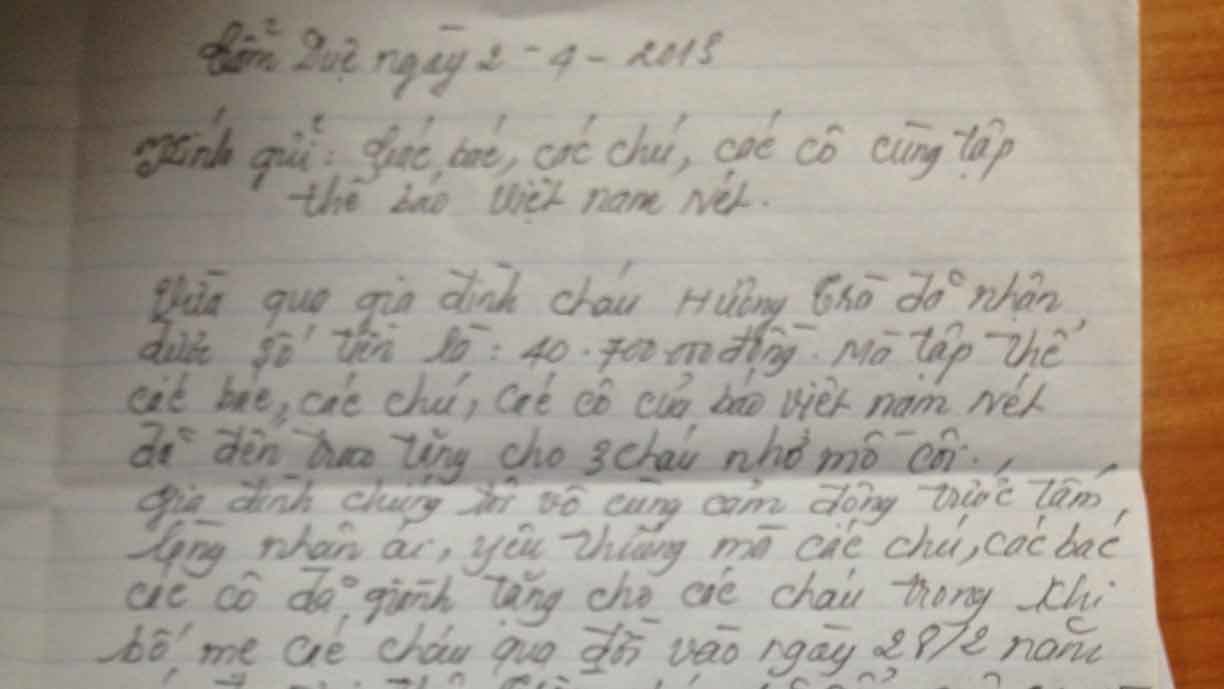 Cẩm Duệ ngày 2 - 4 - 2013
Kính gửi: Các bác, các chú, các cô cùng tập
thể báo Việt nam Nét.
Vừa qua gia đình cháu Hương Trà đã nhận
được số tiền là: 40.700.000 đồng. Mà tập thể
các bác, các chú, các cô của báo việt nam Nét
đã đến trao tặng cho 3 cháu nhỏ mồ côi.
gia đình chúng tôi vô cùng cảm động trước tấm
lòng nhân ái, yêu thương mà các chú, các bác
các cô đã giành tặng cho các cháu trong khi
bố, mẹ các cháu qua đời vào ngày 28/2 năm